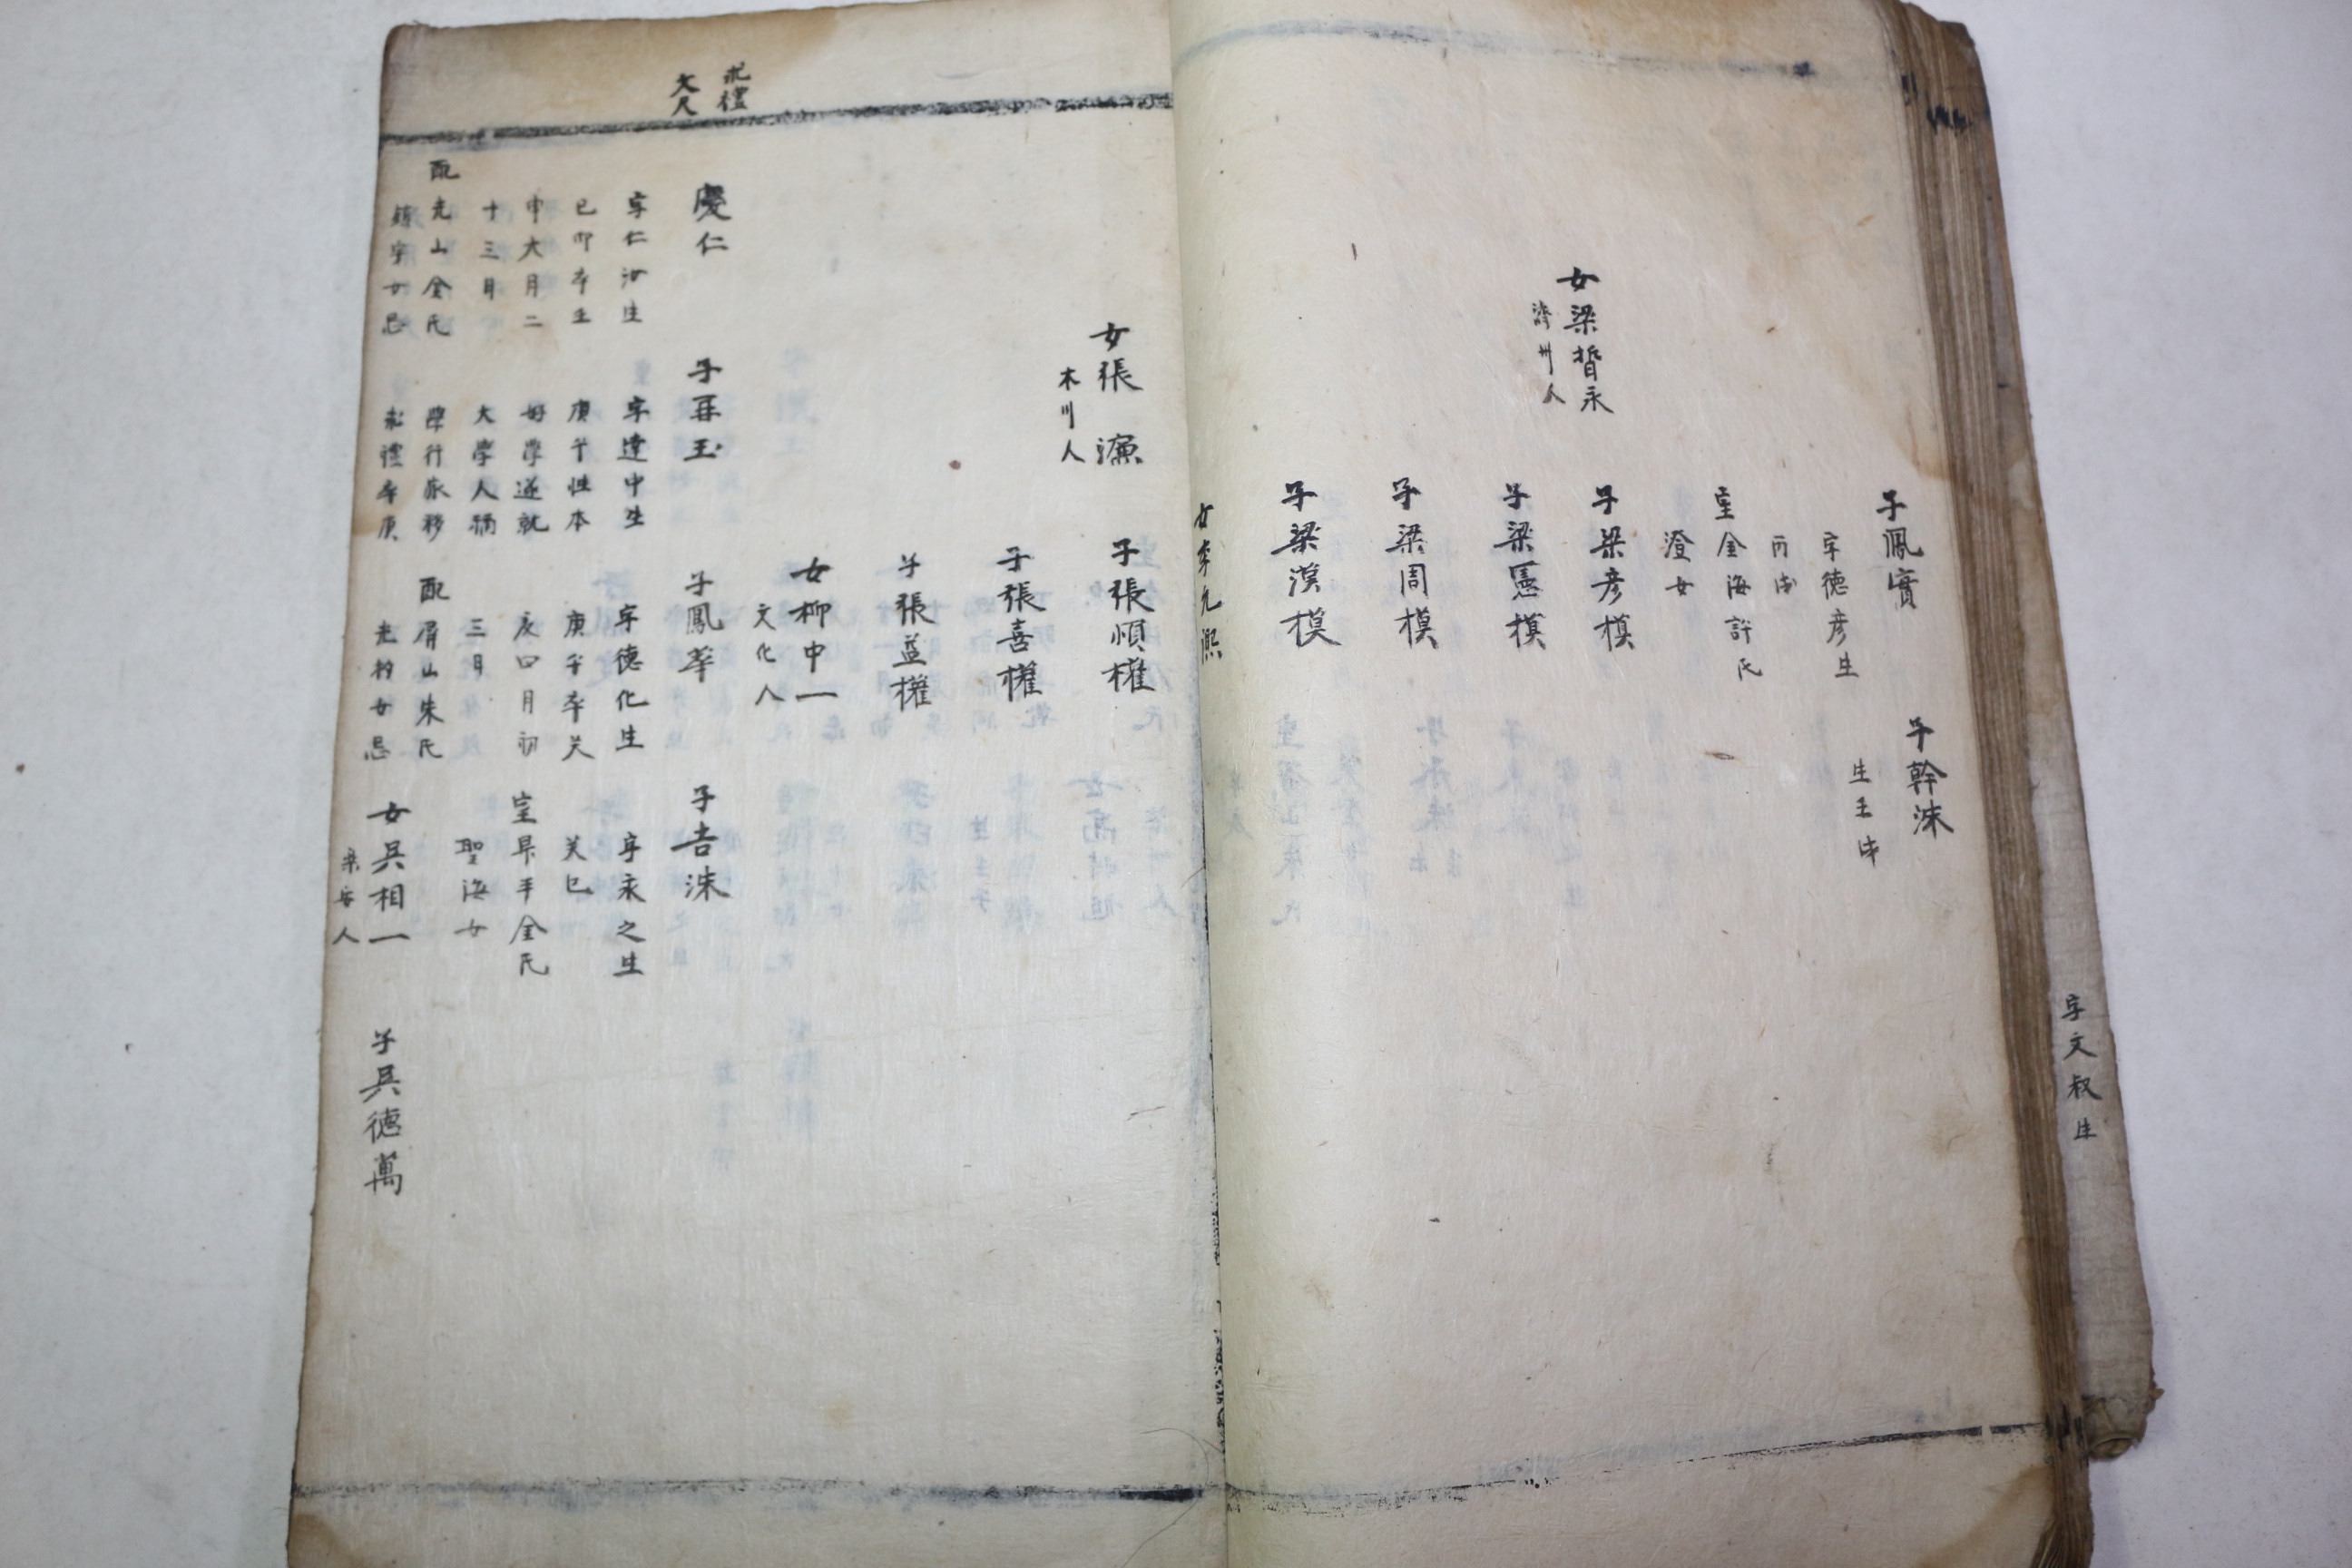 字文叔生
子鳳實
字德彦生
丙戌
室金海許氏
澄女
子幹洙
生壬申
女梁晳永
濟州人
子梁彦模
子梁憲模
子梁周模
子梁漢模
女李允熙
女張濂
木川人
子張順權
子張喜權
子張益權
女柳中一
文化人
求禮
文尺
慶仁
字仁汝生
己卯卒壬
申六月二
十三日
配光山金氏
鎮宇女忌
子再玉
字達中生
庚午性本
好學遂就
大學人稱
學行家移
求禮卒庚
子鳳華
字德化生
庚午卒癸
亥四月初
三日
配眉山朱氏
光朴女忌
子吉洙
字永之生
癸巳
室昌平金氏
聖海女
女吳相一
樂安人
子吳德萬